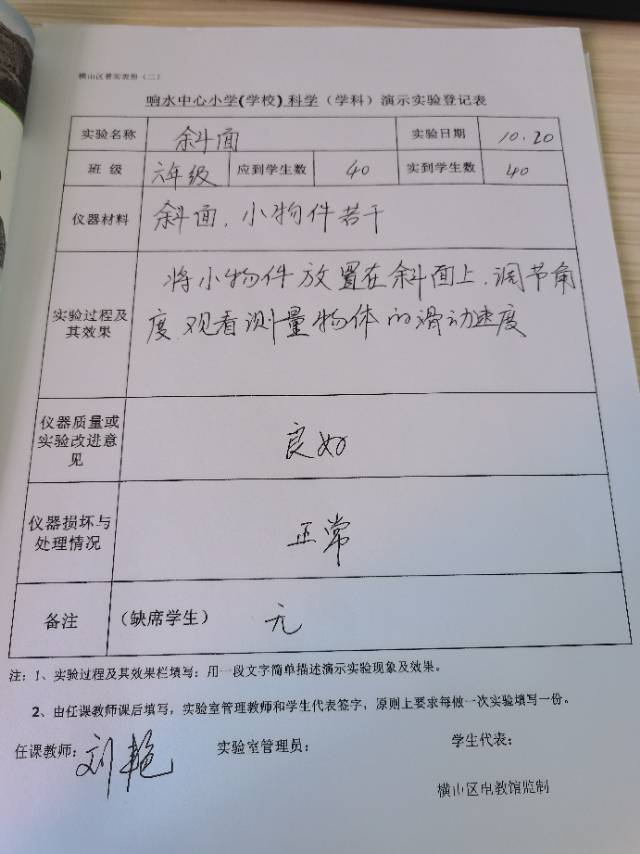 横山区普实表册（二）
响水中心小学(学校)科学（学科）演示实验登记表
实验名称 斜面 实验日期 10.20
班 级 六年级 应到学生数 40 实到学生数 40
仪器材料 斜面，小物件若干
将小物件放置在斜面上，调节角
实验过程及
其效果
度 观看测量物体的滑动速度
仪器质量或
实验改进意
见
良好
仪器损坏与
处理情况
正常
备注 （缺席学生） 无
注：1、实验过程及其效果栏填写：用一段文字简单描述演示实验现象及效果。
2、由任课教师课后填写，实验室管理教师和学生代表签字，原则上要求每做一次实验填写一份。
任课教师：刘艳 实验室管理员： 学生代表：
横山区电教馆监制